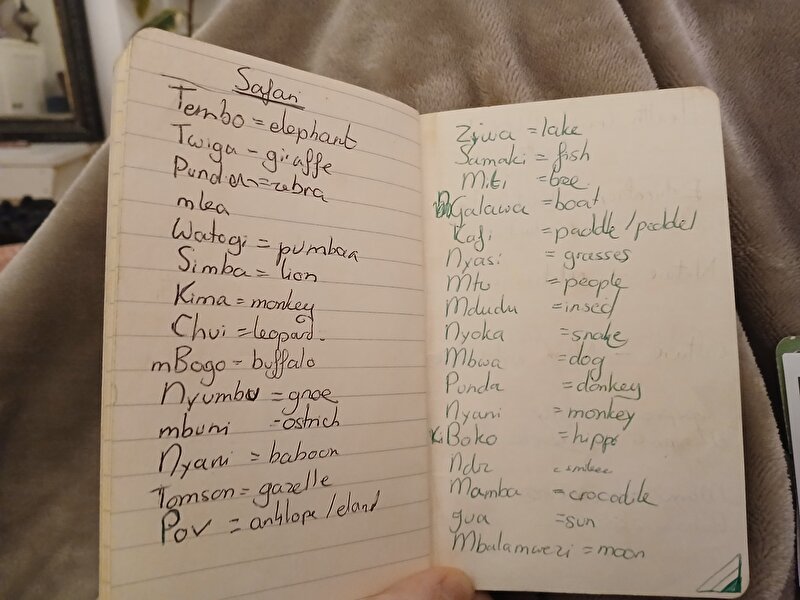 Safari
Tembo = elephant
Twiga - giraffe
Punda = zebra
mlea
Watogi = pumbaa
Simba = lion
Kima = monkey
Chui = leopard.
mBogo = buffalo
Nyumbu = gnoe
mbuni = ostrich
Nyani = baboon
Tomson = gazelle
Pov = antilope / eland
Ziwa = lake
Samaki = fish
Miti =
Galawa = boat
Kafi = paddle / peddel
Nyasi = grasses
Mtu = people
Mdudu = insect
Nyoka = snake
Mbwa = dog
Punda = donkey
Nyani = monkey
KiBoko = hippo
Mamba = crocodile
gua = sun
Mbalamwezi = moon